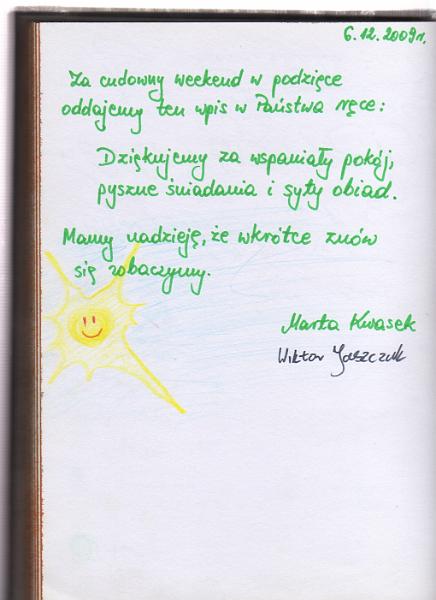 6.12.2009r.
Za cudowny weekend w podzięce
oddajemy ten wpis w Państwa ręce:
Dziękujemy za wspaniały pokój,
pyszne śniadania i syty obiad.
Mamy nadzieję, że wkrótce znów
się zobaczymy.
Marta Kwasek
Wiktor Jaszczuk